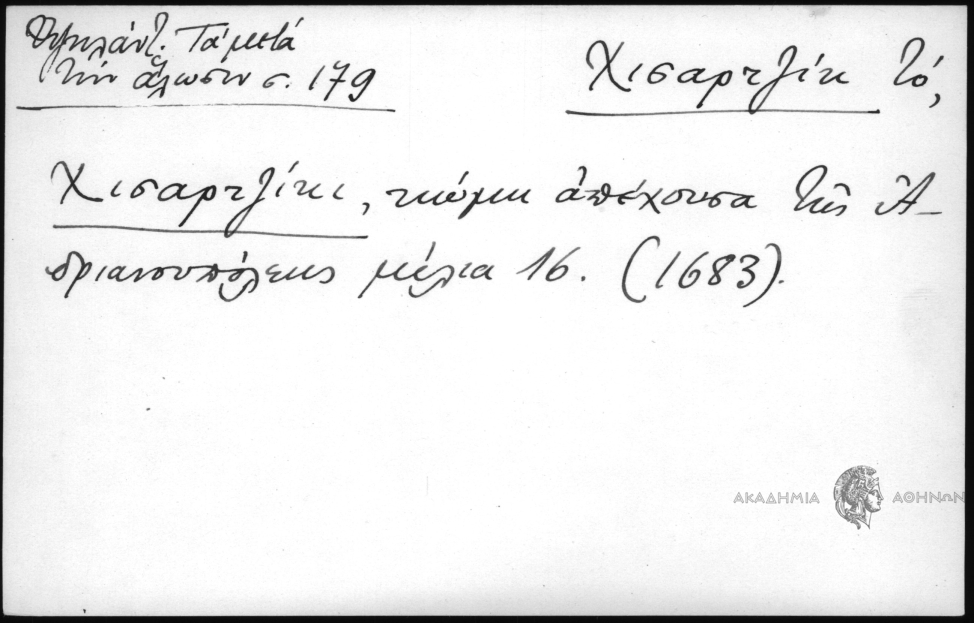 Ὑψηλάντ. Τά μετά
τὴν ἅλωσιν σ. 179
Χισαρτζίκ τό,
Χισαρτζίκι, κώμη ἀπέχουσα τῆς Ἀ-
δριανουπόλεως μίλια 16. (1683).
ΑΚΑΔΗΜΙΑ ΑΘΗΝΩΝ